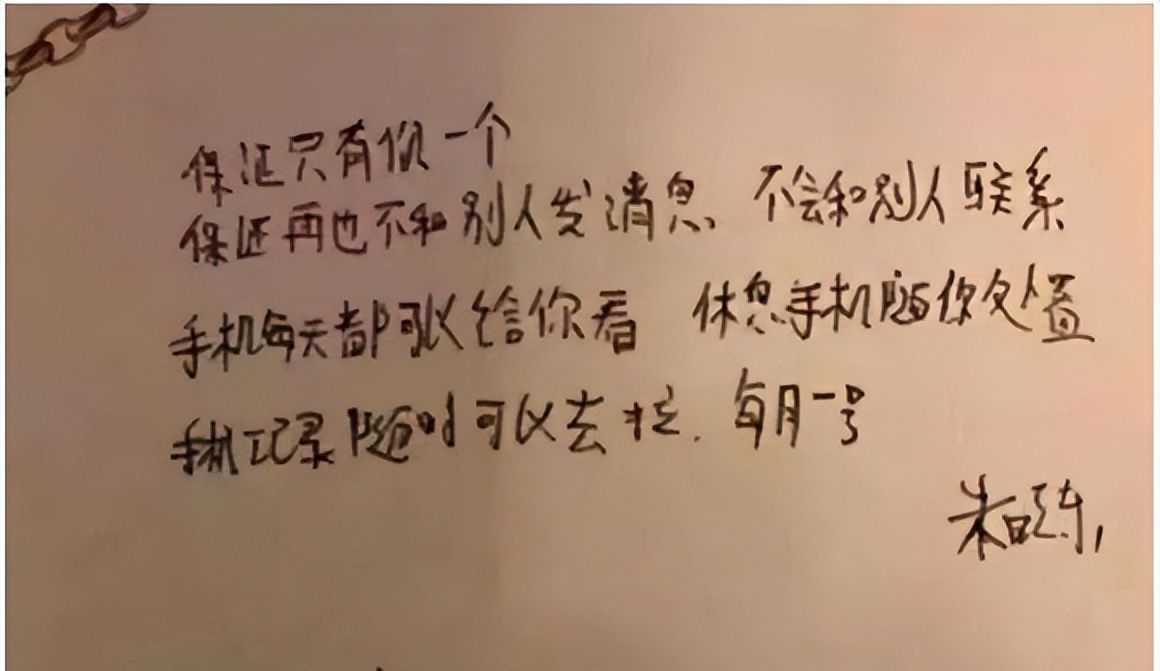 保证只有你一个
保证再也不和别人发消息 不会和别人联系
手机每天都可以给你看 休息手机随你处置
手机记录随时可以去拉. 每月一号
朱晓东,